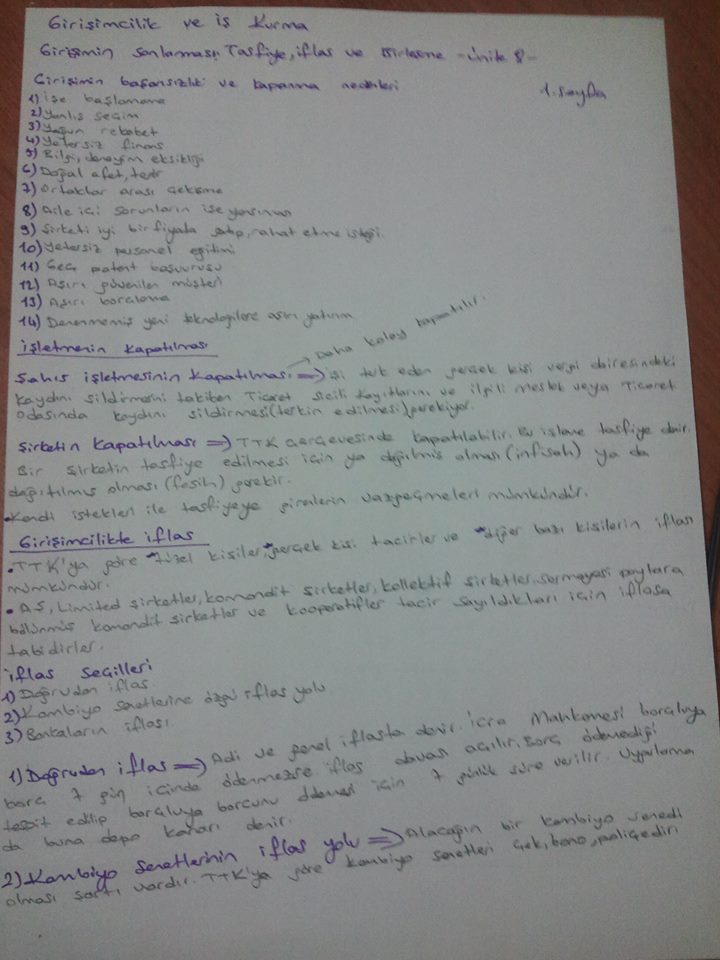 Girişimcilik ve iş Kurma
Girişimin sonlanması; Tasfiye, iflas ve Birleşme -Ünite 8-
Girişimin başarısızlık ve kapanma nedenleri
1. sayfa
1) İşe başlamama
2) Yanlış seçim
3) Yoğun rekabet
4) Yetersiz finans
5) Bilgi, deneyim eksikliği
6) Doğal afet, terör
7) Ortaklar arası çekişme
8) Aile içi sorunların işe yansıması
9) Şirketi iyi bir fiyata satıp, rahat etme isteği.
10) Yetersiz personel eğitimi
11) Geç patent başvurusu
12) Aşırı güvenilen müşteri
13) Aşırı borçlanma
14) Denenmemiş yeni teknolojilere aşırı yatırım
İşletmenin Kapatılması
Daha kolay kapatılır.
Şahıs işletmesinin kapatılması => işi terk eden gerçek kişi vergi dairesindeki
kaydını sildirmesini takiben Ticaret Sicili Kayıtlarını ve ilgili Meslek veya Ticaret
Odasında kaydını sildirmesi (terkin edilmesi) gerekiyor.
Şirketin kapatılması => TTK çerçevesinde kapatılabilir. Bu işleme tasfiye denir.
Bir şirketin tasfiye edilmesi için ya dağılmış olması (infisah) ya da
dağıtılmış olması (fesih) gerekir.
• Kendi istekleri ile tasfiyeye girenlerin vazgeçmeleri mümkündür.
Girişimcilikte iflas
• TTK'ya göre *tüzel kişiler, *gerçek kişi tacirler ve *diğer bazı kişilerin iflası
mümkündür.
• A.Ş, Limited şirketler, komandit şirketler, kollektif şirketler, sermayesi paylara
bölünmüş komandit şirketler ve kooperatifler tacir sayıldıkları için iflasa
tabidirler.
iflas Seçilleri
1) Doğrudan iflas
2) Kambiyo senetlerine özgü iflas yolu
3) Bankaların iflası
1) Doğrudan iflas => Adi ve genel iflasta denir. İcra Mahkemesi borçluya
borç 7 gün içinde ödenmezse iflas davası açılır. Borç ödemediği
tespit edilip borçluya borcunu ödemesi için 7 günlük süre verilir. Uygulama
da buna depo kararı denir.
2) Kambiyo Senetlerinin iflas yolu => Alacağın bir kambiyo senedi
olması şartı vardır. TTK'ya göre kambiyo senetleri çek, bono, poliçedir